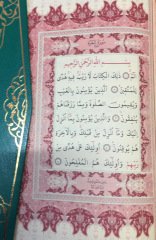 بِسْمِ اللَّهِ الرَّحْمَٰنِ الرَّحِيمِ
الٓمٓ ذَٰلِكَ الْكِتَابُ لَا رَيْبَ فِيهِ هُدًى
لِّلْمُتَّقِينَ الَّذِينَ يُؤْمِنُونَ بِالْغَيْبِ
وَيُقِيمُونَ الصَّلَوٰةَ وَمِمَّا رَزَقْنَاهُمْ
يُنفِقُونَ وَالَّذِينَ يُؤْمِنُونَ بِمَا أُنزِلَ
إِلَيْكَ وَمَا أُنزِلَ مِن قَبْلِكَ وَبِالْآخِرَةِ
هُمْ يُوقِنُونَ أُولَٰئِكَ عَلَىٰ هُدًى مِّن
رَّبِّهِمْ وَأُولَٰئِكَ هُمُ الْمُفْلِحُونَ